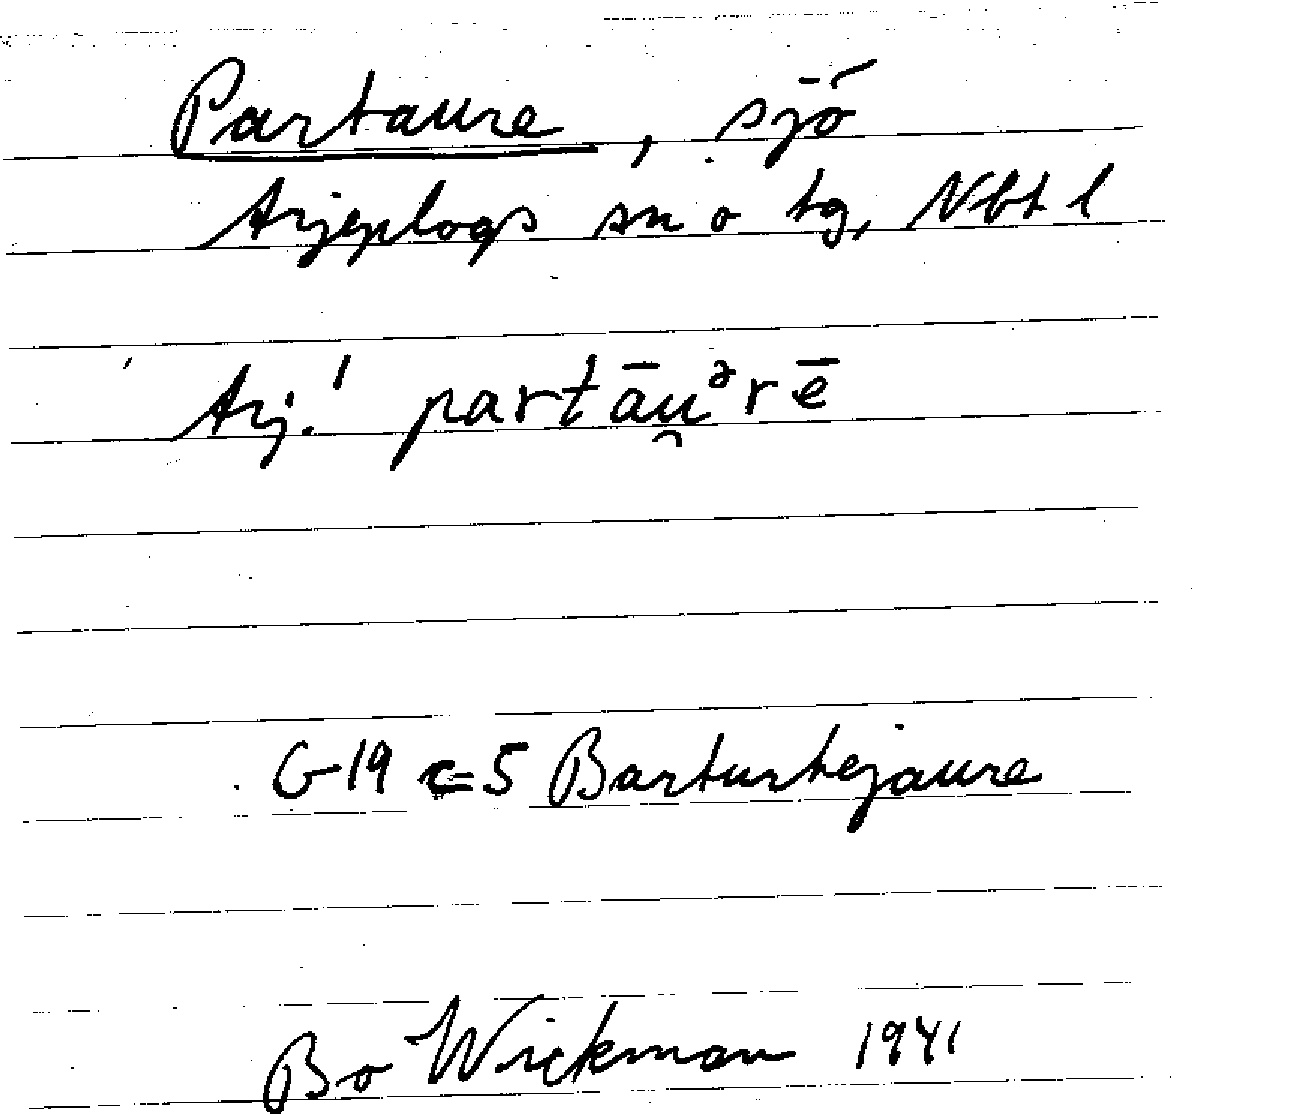 Partaure, sjö
Arjeplogs sn o tg, Nbt l
Arj.! partāu̯ᵊrē
G-19 c-5 Barturtejaure
Bo Wickman 1941